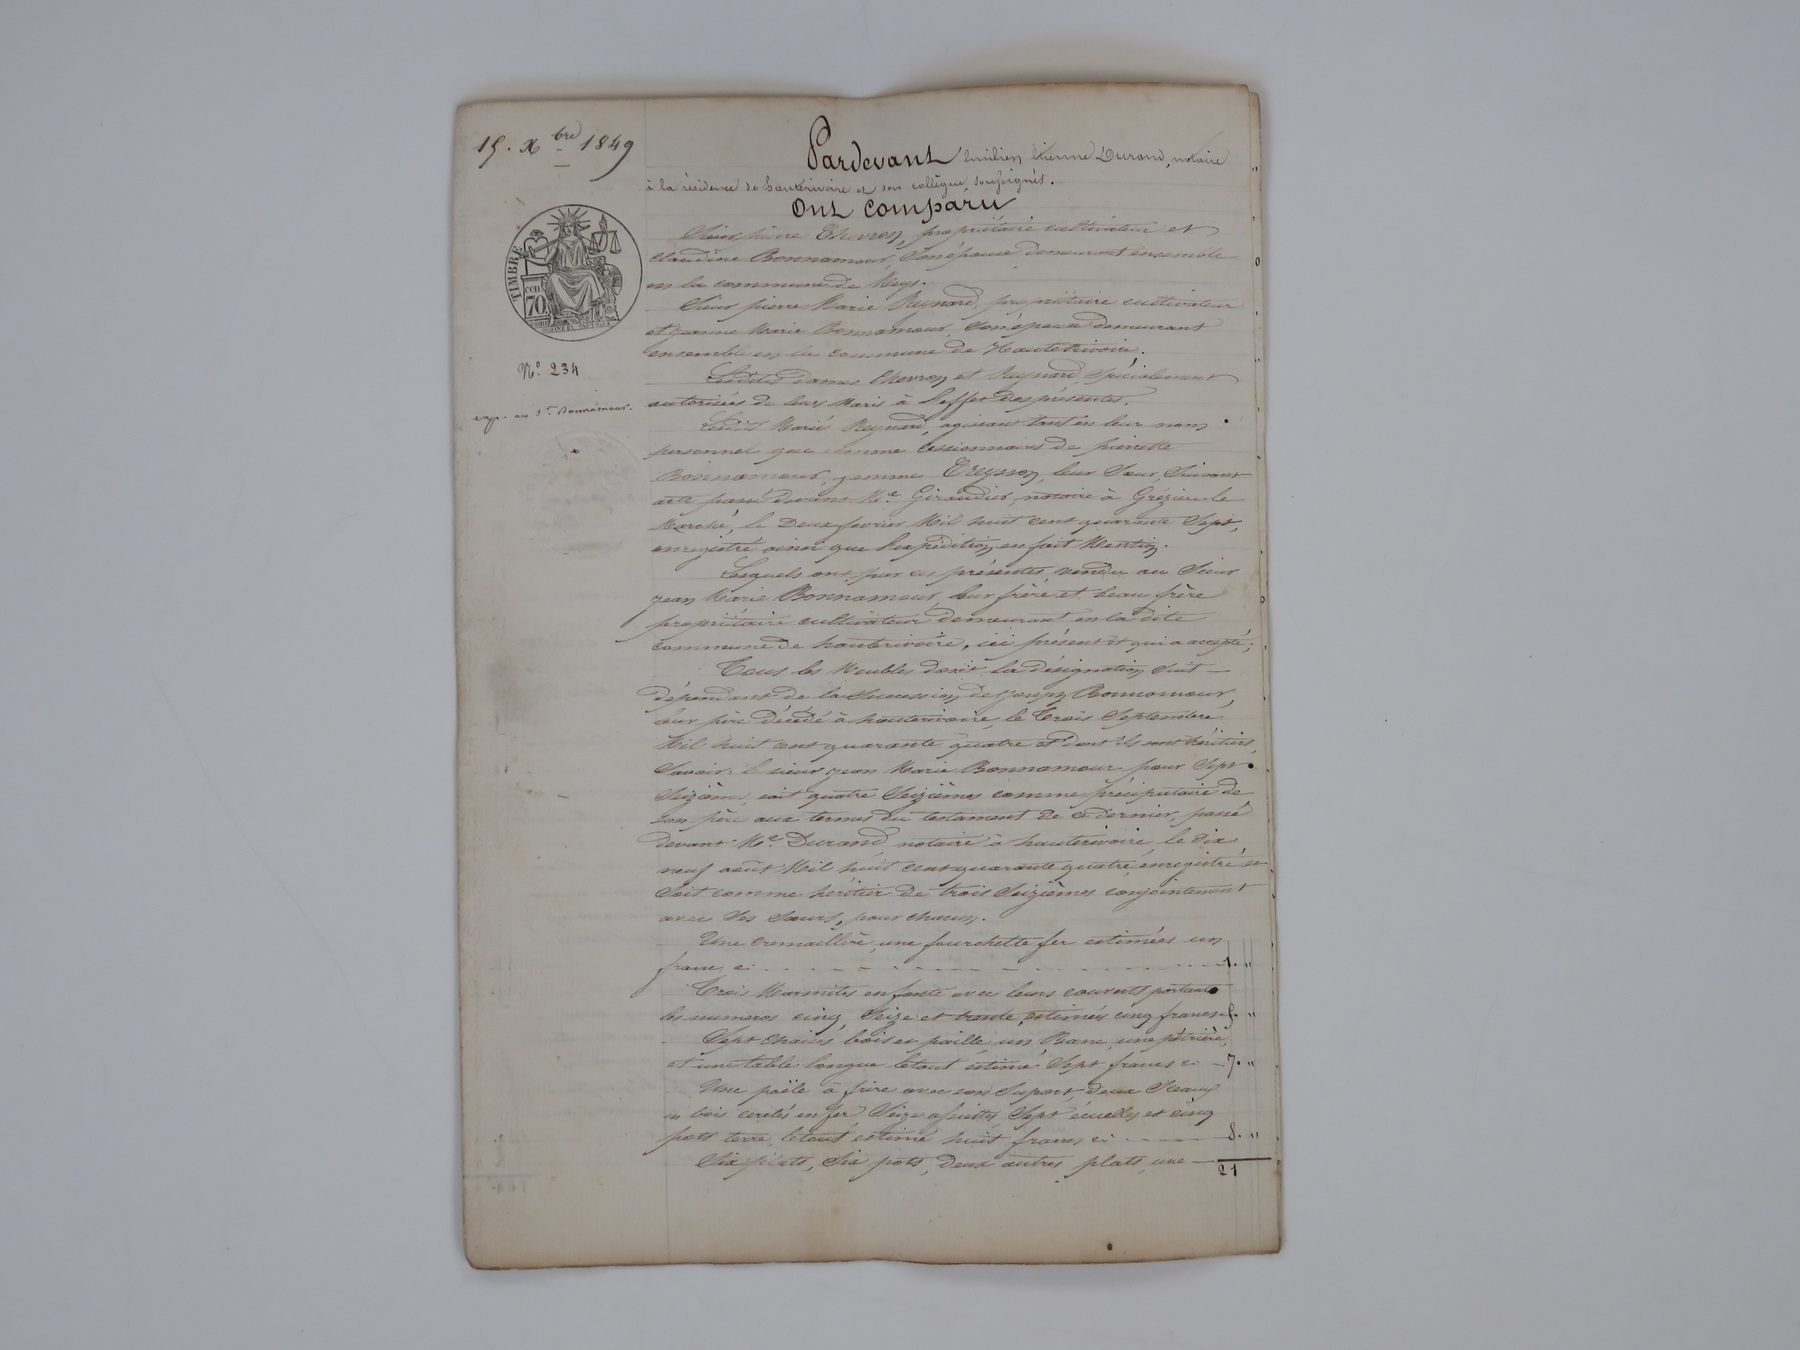 15. Xbre 1849
Pardevant Emilien Etienne Durand, notaire
à la résidence de hauterivoire et son collègue, soussignés.
Ont comparu
TIMBRE
70
Sieur pierre Thevron, propriétaire cultivateur et
claudine Bonnamour, Son épouse demeurant ensemble
en la commune de Meys.
Sieur pierre Marie Reynard, propriétaire cultivateur
et jeanne Marie Bonnamour, Son épouse demeurant
ensemble en la commune de Hauterivoire.
N° 234
Lesdites dames Thevron et Reynard, Spécialement
autorisées de leurs Maris à l'effet des présentes.
exp. au Sr Bonnamour.
Lesdits Marié Reynard, agissant tant en leur nom
personnel que comme Cessionnaires de pierrette
Bonnamour, femme Treysson, leur Sœur, Suivant
acte passé devant Me Giraudier, notaire à Grézieu le
Marché, le Deux février Mil huit cent quarante Sept,
enregistré ainsi que l'expédition en fait Mention.
Lesquels ont par ces présentes, vendu au Sieur
jean Marie Bonnamour, leur frère et beau frère
propriétaire cultivateur demeurant en la dite
commune de hauterivoire, ici présent et qui a accepté;
Tous les Meubles dont la désignation Suit
dépendant de la Succession de joseph Bonnamour,
leur père décédé à hauterivoire, le Trois Septembre
Mil huit cent quarante quatre et dont ils sont héritiers,
Savoir: le sieur jean Marie Bonnamour pour Sept
Seizièmes, soit quatre Seizièmes comme précipuaire de
son père aux termes du testament de ce dernier, passé
devant Me Durand, notaire à hauterivoire, le dix
neuf août Mil huit cent quarante quatre, enregistré et
Soit comme héritier de trois Seizièmes conjointement
avec Ses Sœurs, pour chacun.
Une cremaillère, une fourchette fer estimées un
franc, ci 1. "
Trois Marmites en fonte avec leurs couverts portant
les numéros cinq, Seize et trente, estimées cinq francs 5. "
Sept chaises bois et paille, un Banc, une pétrière,
et une table longue le tout estimé Sept francs ci 7. "
Une poële à frire avec son Suport, deux Seaux
en bois cerclés en fer, Seize assiettes, Sept écuelles et cinq
pots terre, le tout estimé huit francs ci 8. "
Six plats, Six pots, deux autres plats, une
21